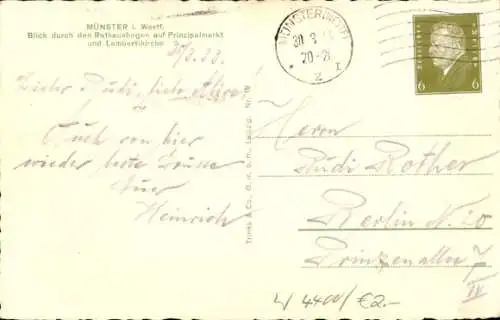 MÜNSTER i. Westf.
Blick durch den Rathausbogen auf Principalmarkt
und Lambertikirche
30/3.33.
Lieber Rudi, liebe Alice!
Euch von hier
wieder beste Grüsse
Euer
Heinrich
Trinks & Co., G. m. b. H., Leipzig. Nr.
MÜNSTER (WESTF)
30 3
20-21
Z
DEUTSCHES REICH
6 6
Herrn
Rudi Rother
Berlin N. 20
Prinzenallee 7
IV
4400/ €2.-